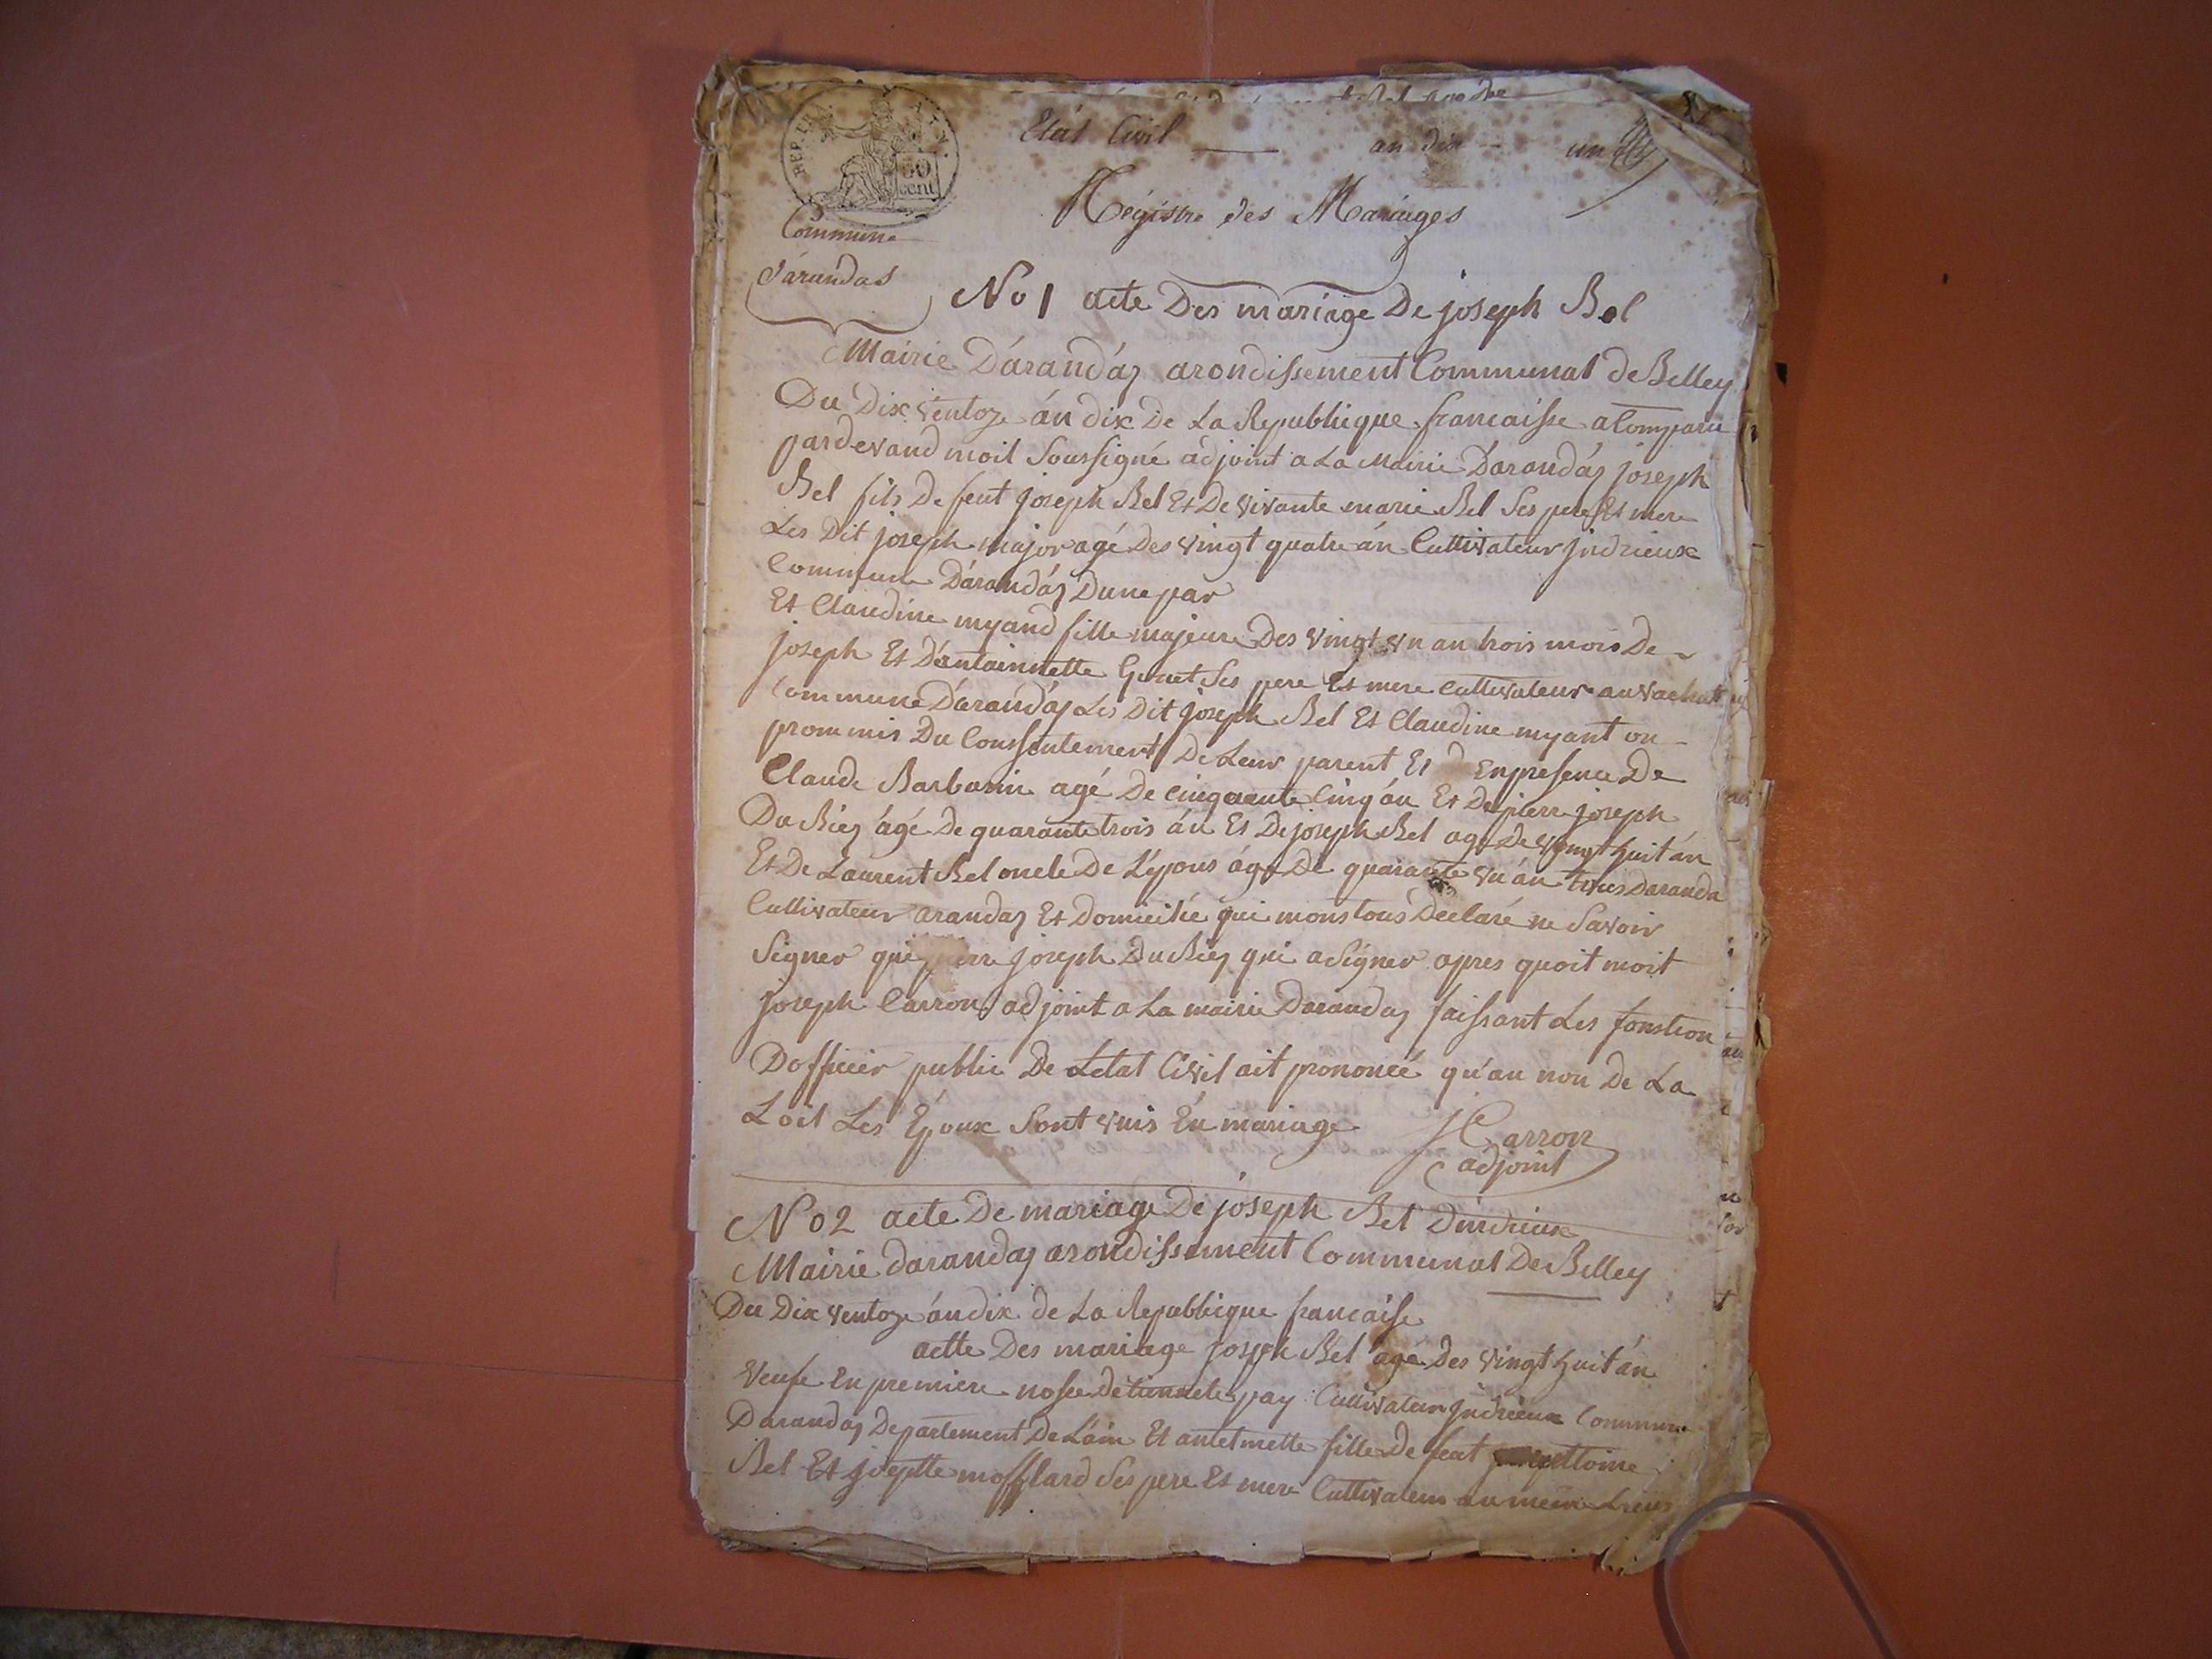 REP. FRA
50
cent
Etat Civil — an dix — un
Registre des Mariages
Commune
d'arandas
No 1 acte Des mariage De joseph Bel
Mairie D'arandas arondissement Communal de Belley
Du Dix ventoze án dix De La Republique francaisse a Comparu
pardevand moil Soussigné adjoint a La Mairie D'arandas joseph
Bel fils De feut joseph Bel Et De vivante marie Bel Ses pere Et mere
Les Dit joseph major agé Des vingt quatre án Cultivateur jndrieux
Commune D'arandas Dune par
Et Claudine myand fille majeure Des vingt un an trois mois De
joseph Et D'antainnette Ses pere Et mere Cultivateur au vachat
Commune D'arandas Les Dit joseph Bel Et Claudine myant on
prommis Du Conssentement De Leur parent Et En presence De
Claude Barbarin agé De cinquante Cinq án Et De pierre joseph
Du Riez agé De quarante trois án Et De joseph Bel age De vingt huit án
Et De Laurent Bel oncle De L'epous áge De quarante un án tous Daranda
Cultivateur arandas Et Domicilié qui mons tous Declaré ne Savoir
Signer que pierre joseph Du Riez qui a Signer apres quoit moit
joseph Carron adjoint a La mairie Darandas faissant Les fonstion
Dofficier public De Letat Civil ait prononcé qu'au non De La
Loit Les Epoux Sont unis En mariage
J Carron
adjoint
No 2 acte De mariage De joseph Bel Dindrieux
Mairie darandas arondissement Communal De Belley
Du Dix ventoze án dix de La Republique francaisse
actte Des mariage joseph Bel agé Des vingt huit án
veufe En premiere nosse detiennete pay Cultivateur jndrieux Commune
Darandas Departement De L'ain Et antelmette fille De feut
Bel Et joseptte mofflard Ses pere Et mere Cultivateur au meme Lieux